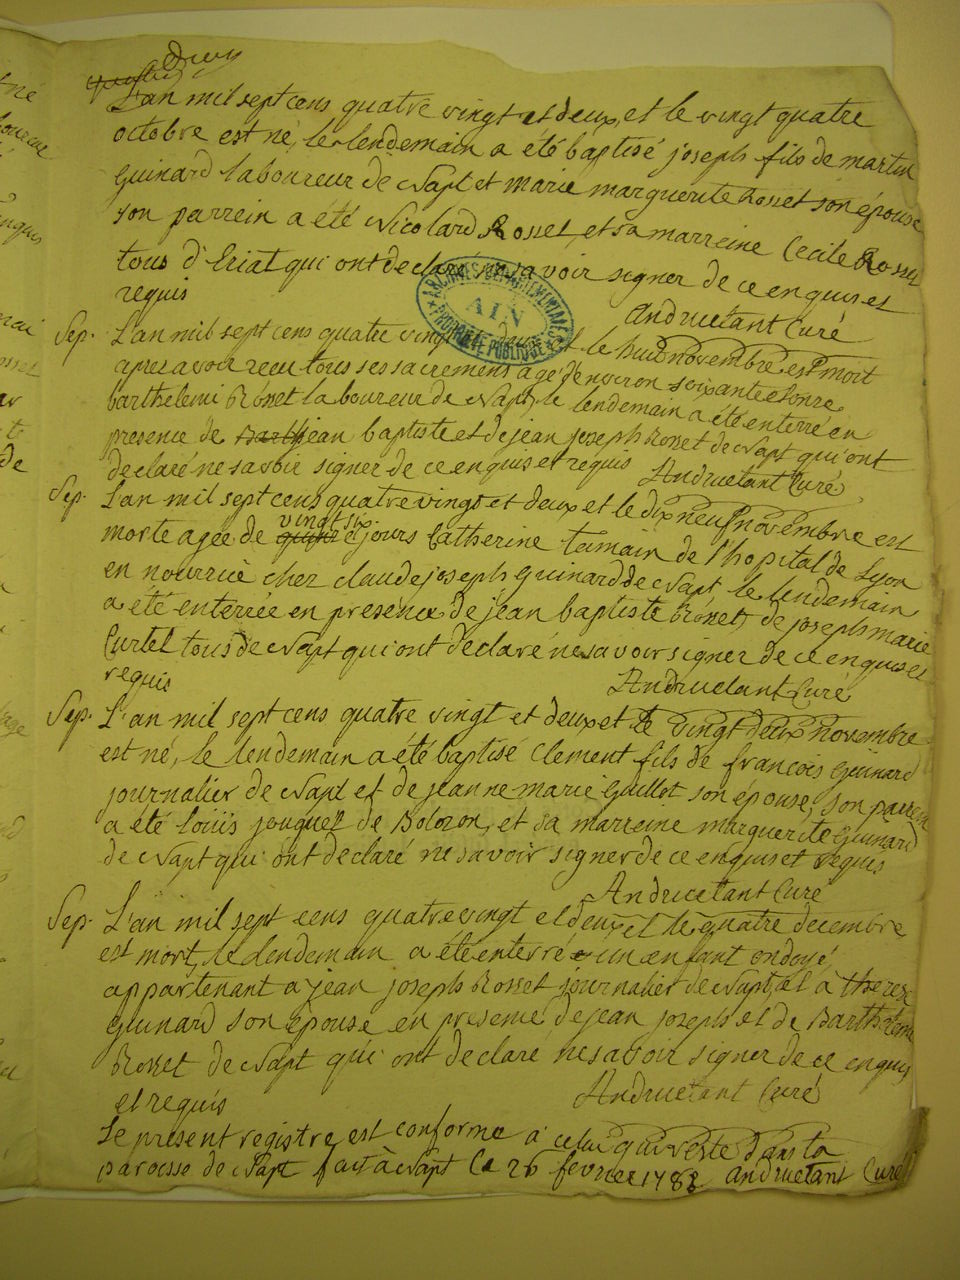 deux
L'an mil sept cens quatre vingt et deux, et le vingt quatre
octobre est né, le lendemain a été baptisé joseph fils de martin
Guinard laboureur de Napt et marie marguerite Rosset son épouse
son parrein a été Nicolard Rosset, et sa marreine Cecile Rosset
tous d'Eriat qui ont declaré ne savoir signer de ce enquis et
requis
Andruetant Curé
ARCHIVES DEPARTEMENTALES
AIN
PROPRIETE PUBLIQUE
Sep. L'an mil sept cens quatre vingt et deux et le huit novembre est mort
apres avoir reçu tous ses sacremens agé d'environ soixante et onze
barthelemi Rosset laboureur de Napt, le lendemain a été enterré en
presence de jean baptiste et de jean joseph Rosset de Napt qui ont
declaré ne savoir signer de ce enquis et requis Andruetant Curé
Sep. L'an mil sept cens quatre vingt et deux et le dix neuf novembre est
vingt six
morte agée de quinze jours Catherine tamain de l'hopital de Lyon
en nourrice chez claude joseph guinard de Napt, le lendemain
a été enterrée en presence de jean baptiste Rosset, de joseph marie
Curtet tous de Napt qui ont declaré ne savoir signer de ce enquis et
requis
Andruetant Curé
Sep. L'an mil sept cens quatre vingt et deux et le vingt deux novembre
est né, le lendemain a été baptisé Clement fils de francois Guinard
journalier de Napt et de jeanne marie Guillot son epouse, son parrein
a été louïs jouguet de Bolozon, et sa marreine marguerite Guinard
de Napt qui ont declaré ne savoir signer de ce enquis et requis
Andruetant Curé
Sep. L'an mil sept cens quatre vingt et deux et le quatre decembre
est mort, le lendemain a été enterré un enfant ondoyé
appartenant a jean joseph Rosset journalier de Napt, et à therese
Guinard son épouse en presence de jean joseph et de Barthelemi
Rosset de Napt qui ont declaré ne savoir signer de ce enquis
et requis
Andruetant Curé
Le present registre est conforme a celui qui reste dans la
paroisse de Napt fait à Napt le 26 fevrier 1783 Andruetant Curé